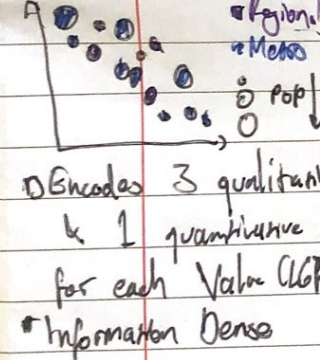 Regional
Metro
Pop
Encodes 3 qualitati
& 1 quantitative
for each Value (LG
Information Dense